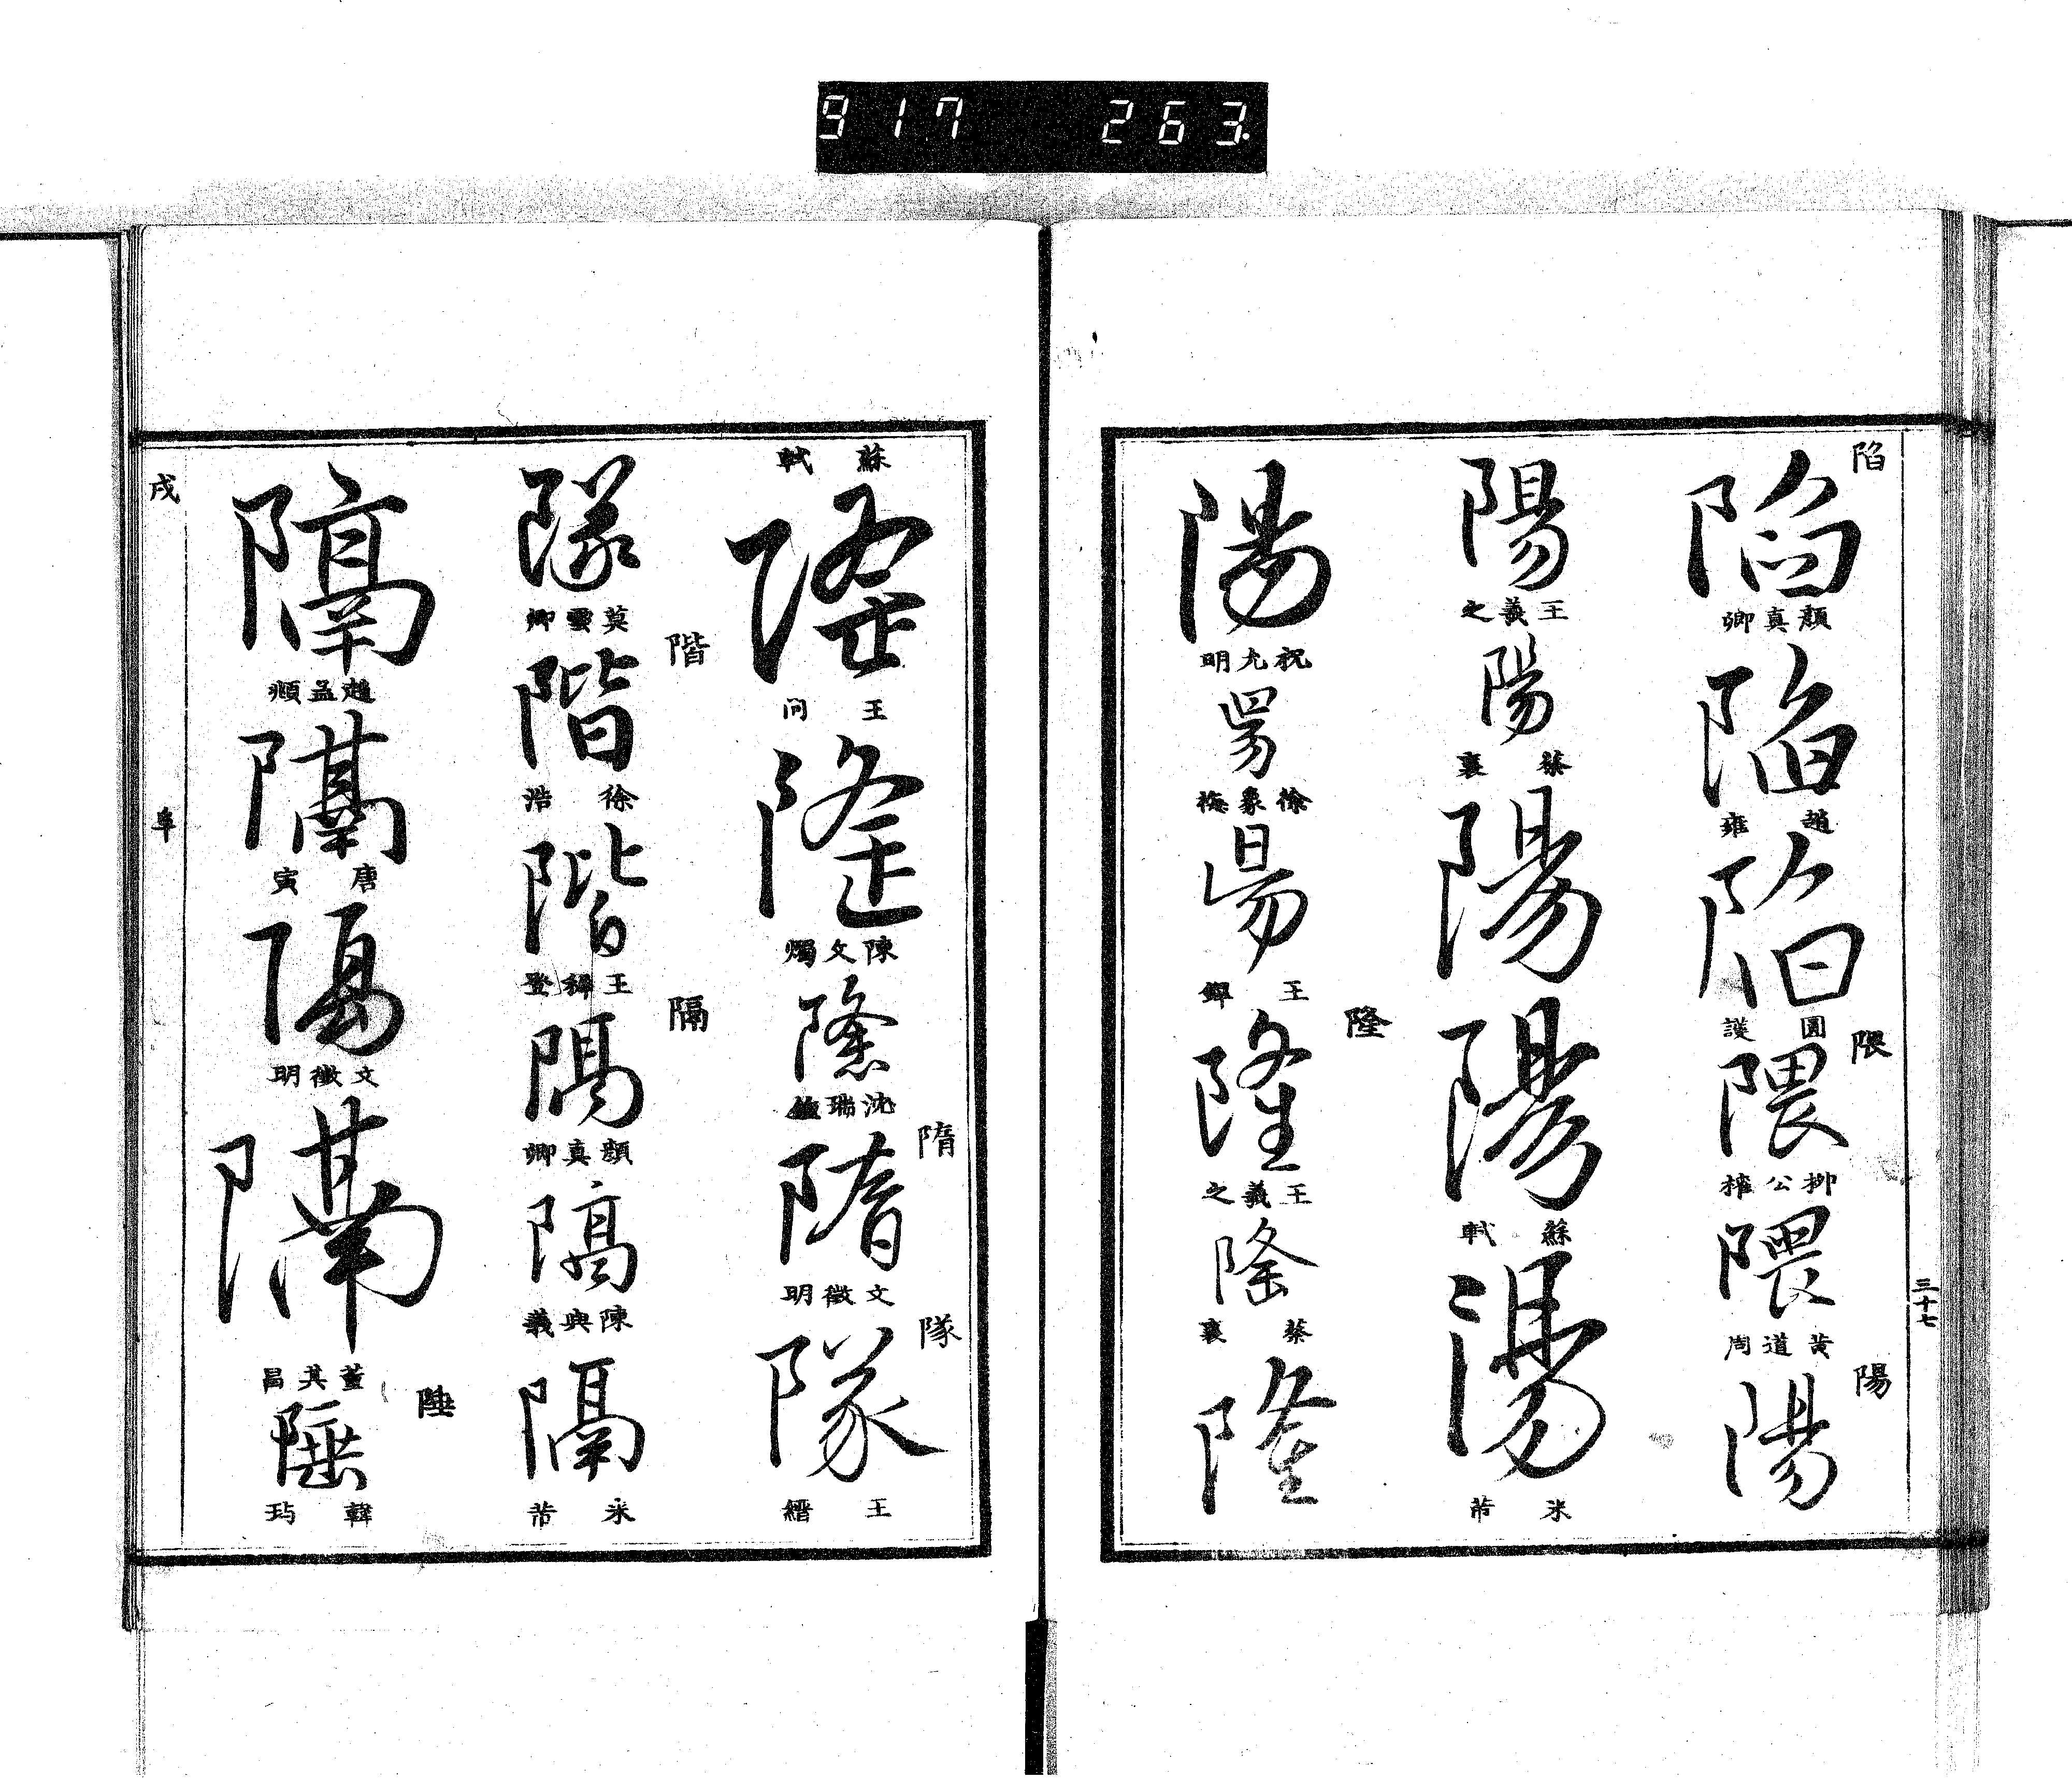 917 263
三十七
陷
陷
顏真卿
陷
趙雍
陷
圓護
隈
隈
柳公權
隈
黃道周
陽
陽
陽
王羲之
陽
蔡襄
陽
陽
蘇軾
陽
米芾
陽
祝允明
徐象梅
王鐸
隆
隆
王羲之
隆
蔡襄
隆
蘇軾
隆
王問
隆
陳文燭
隆
沈瑞
隋
隋
文徵明
隊
隊
王縉
隊
莫雲卿
階
階
徐浩
階
王穉登
隔
隔
顏真卿
隔
陳與義
隔
米芾
隔
趙孟頫
隔
唐寅
隔
文徵明
隔
董其昌
陲
陲
韓
戌
阜